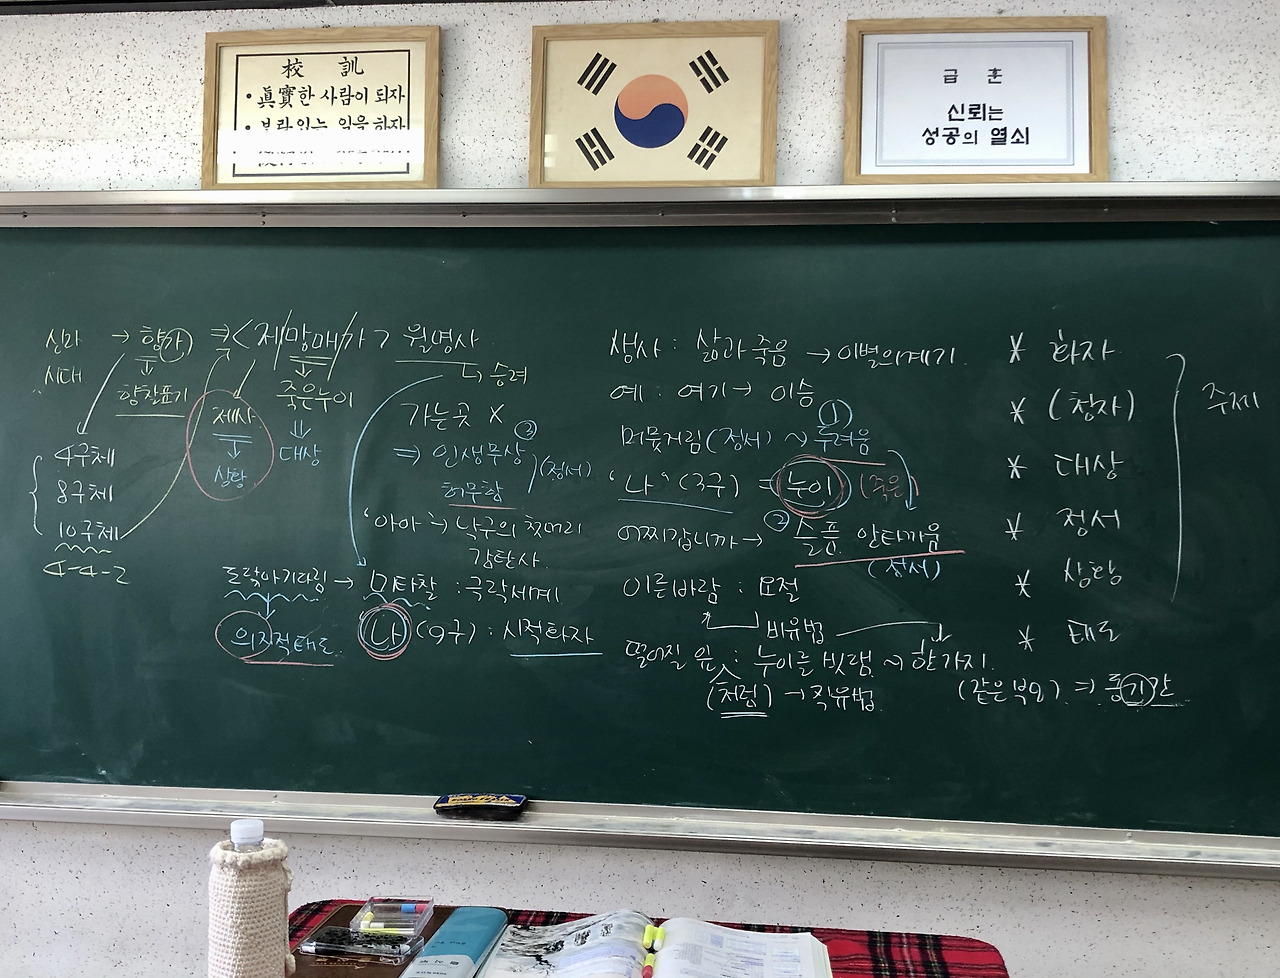 校 訓
• 眞實한 사람이 되자
• 보람있는 일을 하자
급 훈
신뢰는
성공의 열쇠
신라 → 향가 ⇒ <제/망매/가> 월명사
시대
향찰표기
4구체
8구체
10구체
4-4-2
제사
상황
죽은누이
대상
승려
가는곳 X
⇒ 인생무상 ③
허무함 (정서)
'아아' → 낙구의 첫머리
감탄사.
도닦아기다림 → 미타찰 : 극락세계
의지적태도
'나' (9구) : 시적화자
생사 : 삶과 죽음 → 이별의계기.
예 : 여기 → 이승
머뭇거림(정서) ~ 두려움 ①
'나' (3구) = 누이 (죽은)
어찌갑니까 → ② 슬픔 안타까움
(정서)
이른바람 : 요절
비유법
떨어질 잎 : 누이를 빗댐 ~ 한가지.
(처럼) → 직유법
(같은부모) ⇒ 동기간
* 화자
* (청자)
* 대상
* 정서
* 상황
* 태도
주제